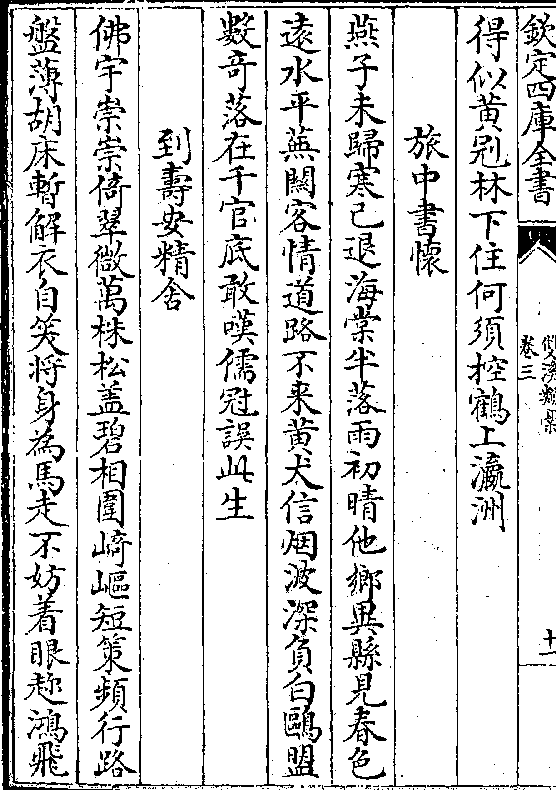 欽定四庫全書
卷三
十一
得似黄冠林下住何須控鶴上瀛洲
旅中書懷
燕子未歸寒已退海棠半落雨初晴他鄉異縣見春色
遠水平蕪闊客情道路不来黄犬信烟波深負白鷗盟
數奇落在千官底敢嘆儒冠誤此生
到壽安精舍
佛宇崇崇倚翠微萬株松盖碧相圍﨑嶇短策頻行路
盤薄胡床暫解衣自笑將身為馬走不妨着眼趂鴻飛